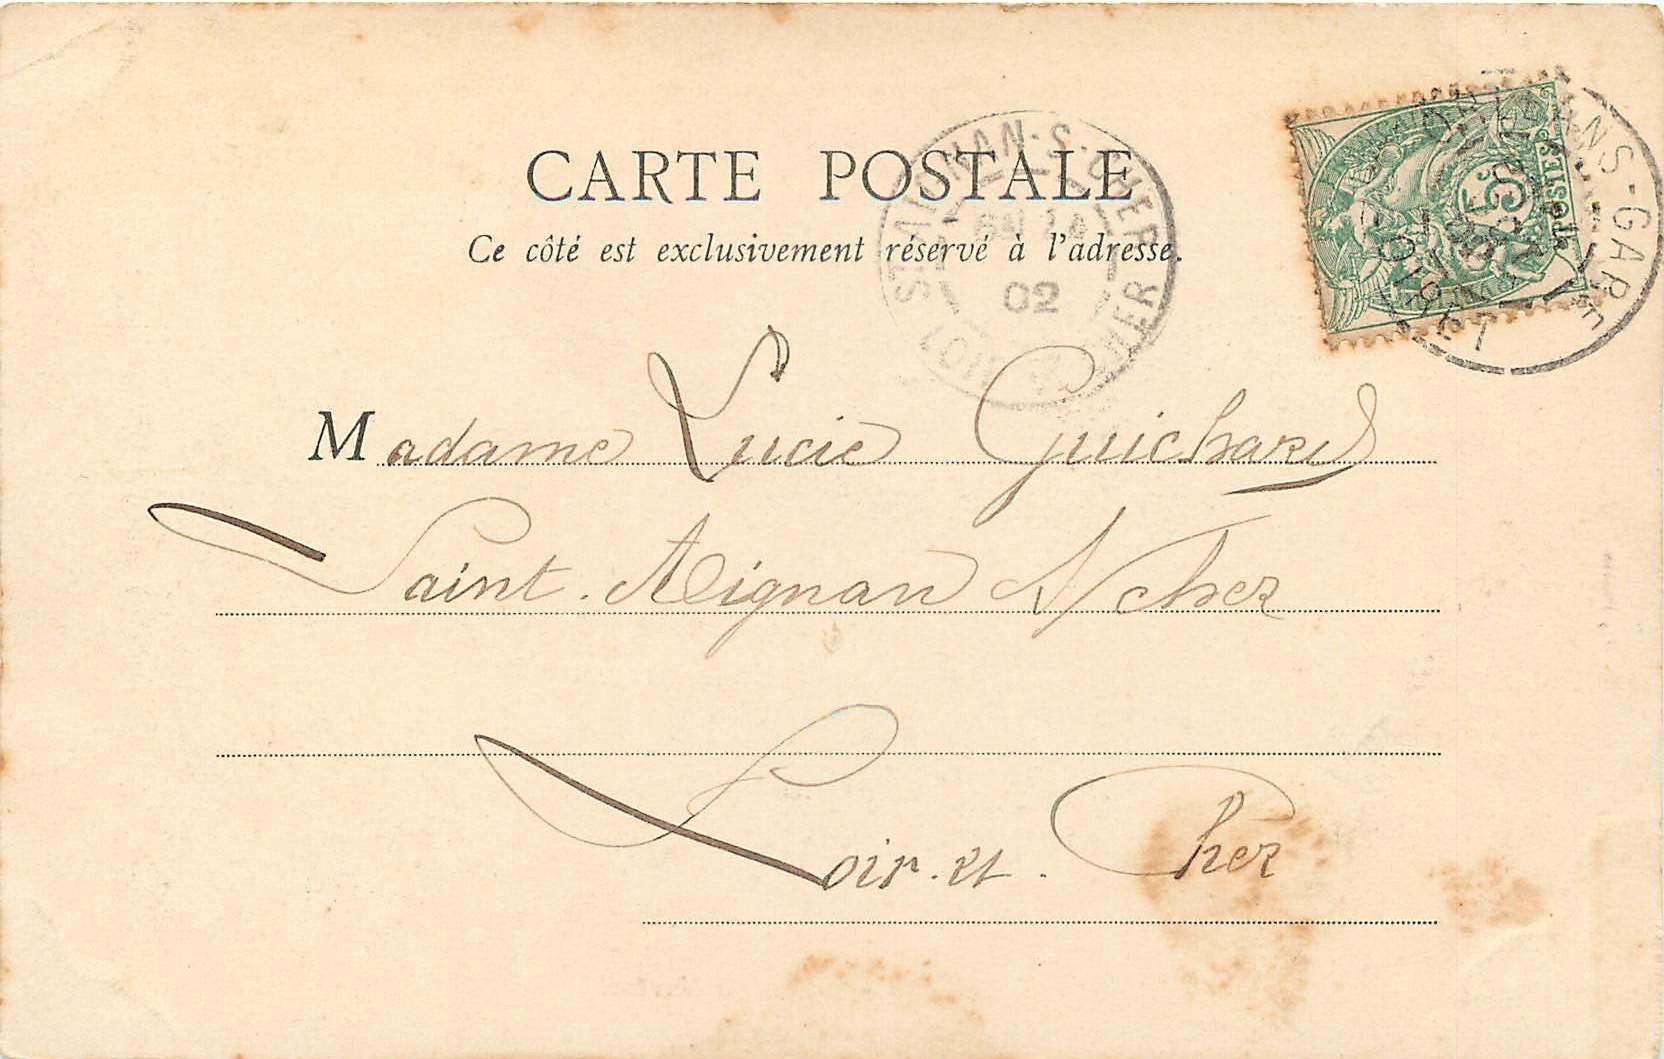 CARTE POSTALE
Ce côté est exclusivement réservé à l'adresse.
ST-AIGNAN-S-CHER
02
LOIR-&-CHER
ORLEANS-GARE
5c
POSTES
Madame Lucie Guichard
Saint. Aignan S/ Cher
Loir. et. Cher